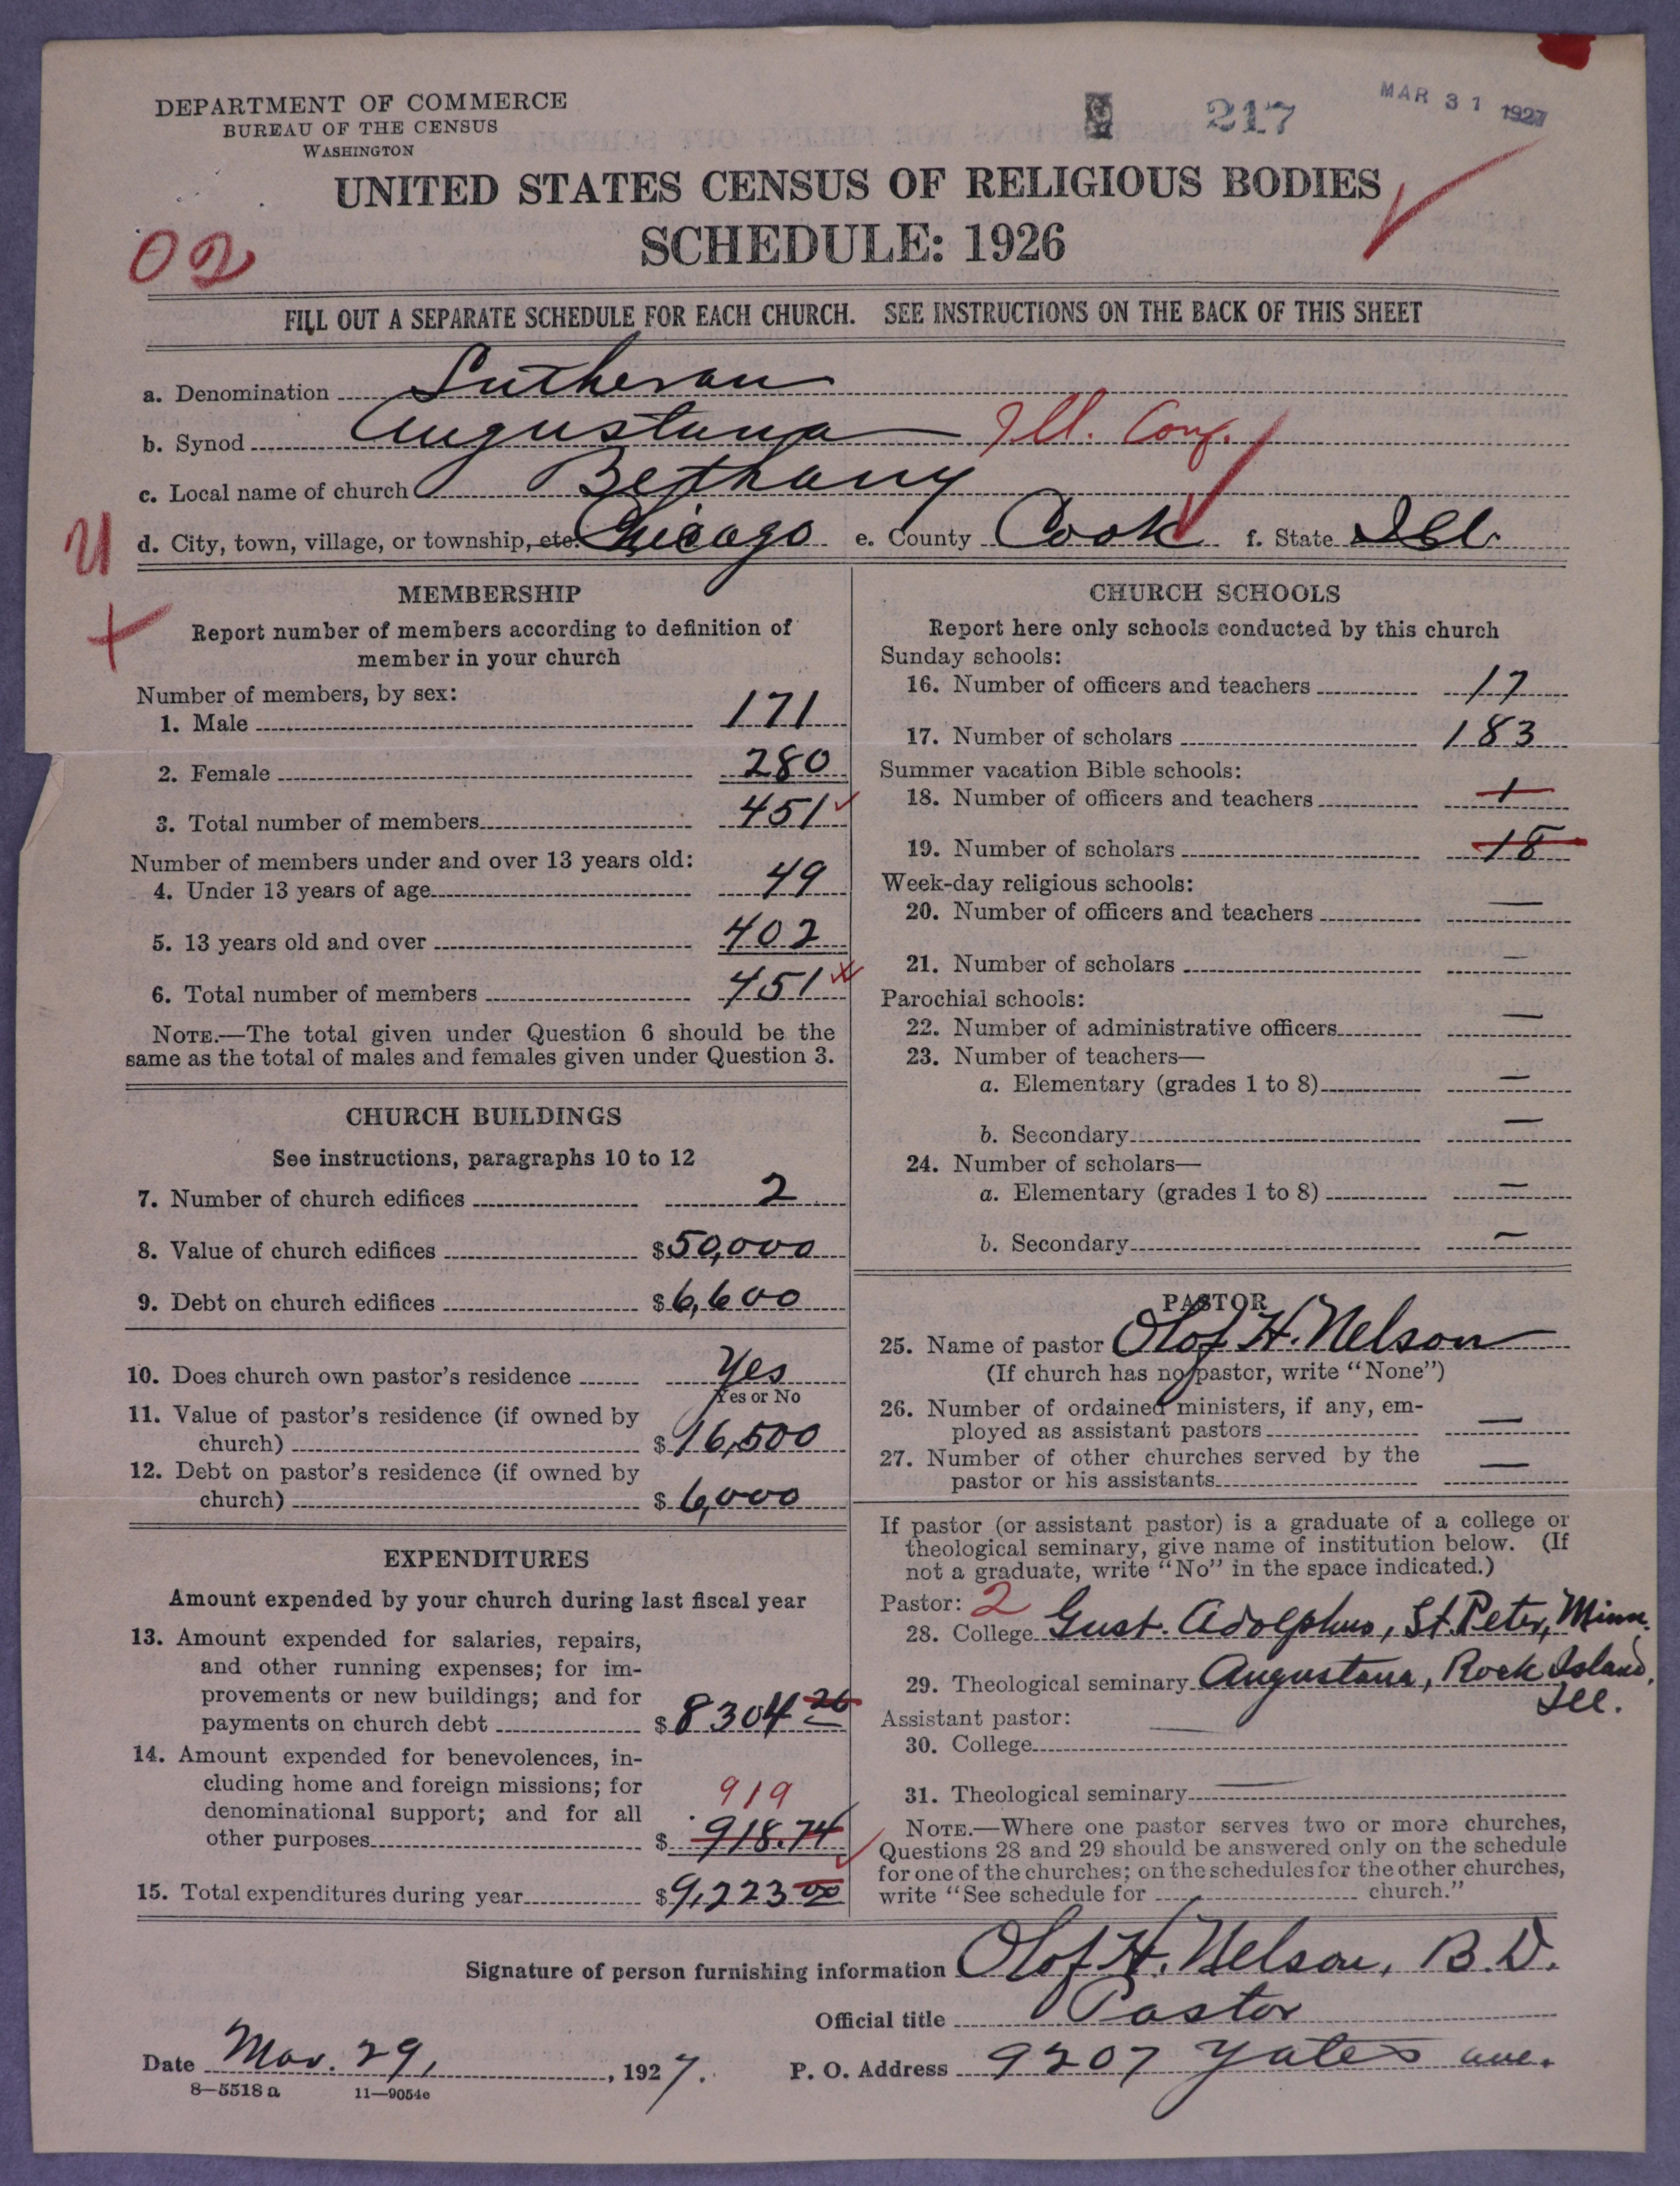 DEPARTMENT OF COMMERCE
BUREAU OF THE CENSUS
WASHINGTON
217
MAR 31 1927
UNITED STATES CENSUS OF RELIGIOUS BODIES
SCHEDULE: 1926
02
FILL OUT A SEPARATE SCHEDULE FOR EACH CHURCH. SEE INSTRUCTIONS ON THE BACK OF THIS SHEET
a. Denomination Lutheran
b. Synod Augustana Ill. Conf.
c. Local name of church Bethany
d. City, town, village, or township, etc. Chicago e. County Cook f. State Ill.
U
MEMBERSHIP
Report number of members according to definition of
member in your church
Number of members, by sex:
1. Male 171
2. Female 280
3. Total number of members 451
Number of members under and over 13 years old:
4. Under 13 years of age 49
5. 13 years old and over 402
6. Total number of members 451
NOTE.—The total given under Question 6 should be the
same as the total of males and females given under Question 3.
CHURCH BUILDINGS
See instructions, paragraphs 10 to 12
7. Number of church edifices 2
8. Value of church edifices $50,000
9. Debt on church edifices $6,600
10. Does church own pastor's residence Yes
Yes or No
11. Value of pastor's residence (if owned by
church) $16,500
12. Debt on pastor's residence (if owned by
church) $6,000
EXPENDITURES
Amount expended by your church during last fiscal year
13. Amount expended for salaries, repairs,
and other running expenses; for im-
provements or new buildings; and for
payments on church debt $8304 26
14. Amount expended for benevolences, in-
cluding home and foreign missions; for
denominational support; and for all
919
other purposes $918.74
15. Total expenditures during year $9,223 00
CHURCH SCHOOLS
Report here only schools conducted by this church
Sunday schools:
16. Number of officers and teachers 17
17. Number of scholars 183
Summer vacation Bible schools:
18. Number of officers and teachers 1
19. Number of scholars 18
Week-day religious schools:
20. Number of officers and teachers —
21. Number of scholars —
Parochial schools:
22. Number of administrative officers —
23. Number of teachers—
a. Elementary (grades 1 to 8) —
b. Secondary —
24. Number of scholars—
a. Elementary (grades 1 to 8) —
b. Secondary —
PASTOR
25. Name of pastor Olof H. Nelson
(If church has no pastor, write "None")
26. Number of ordained ministers, if any, em-
ployed as assistant pastors —
27. Number of other churches served by the
pastor or his assistants —
If pastor (or assistant pastor) is a graduate of a college or
theological seminary, give name of institution below. (If
not a graduate, write "No" in the space indicated.)
Pastor: 2
28. College Gust. Adolphus, St. Peter, Minn.
29. Theological seminary Augustana, Rock Island,
Ill.
Assistant pastor:
30. College —
31. Theological seminary —
NOTE.—Where one pastor serves two or more churches,
Questions 28 and 29 should be answered only on the schedule
for one of the churches; on the schedules for the other churches,
write "See schedule for church."
Signature of person furnishing information Olof H. Nelson, B.D.
Official title Pastor
Date Mar. 29, 1927. P. O. Address 9207 Yates ave.
8—5518 a 11—9054c